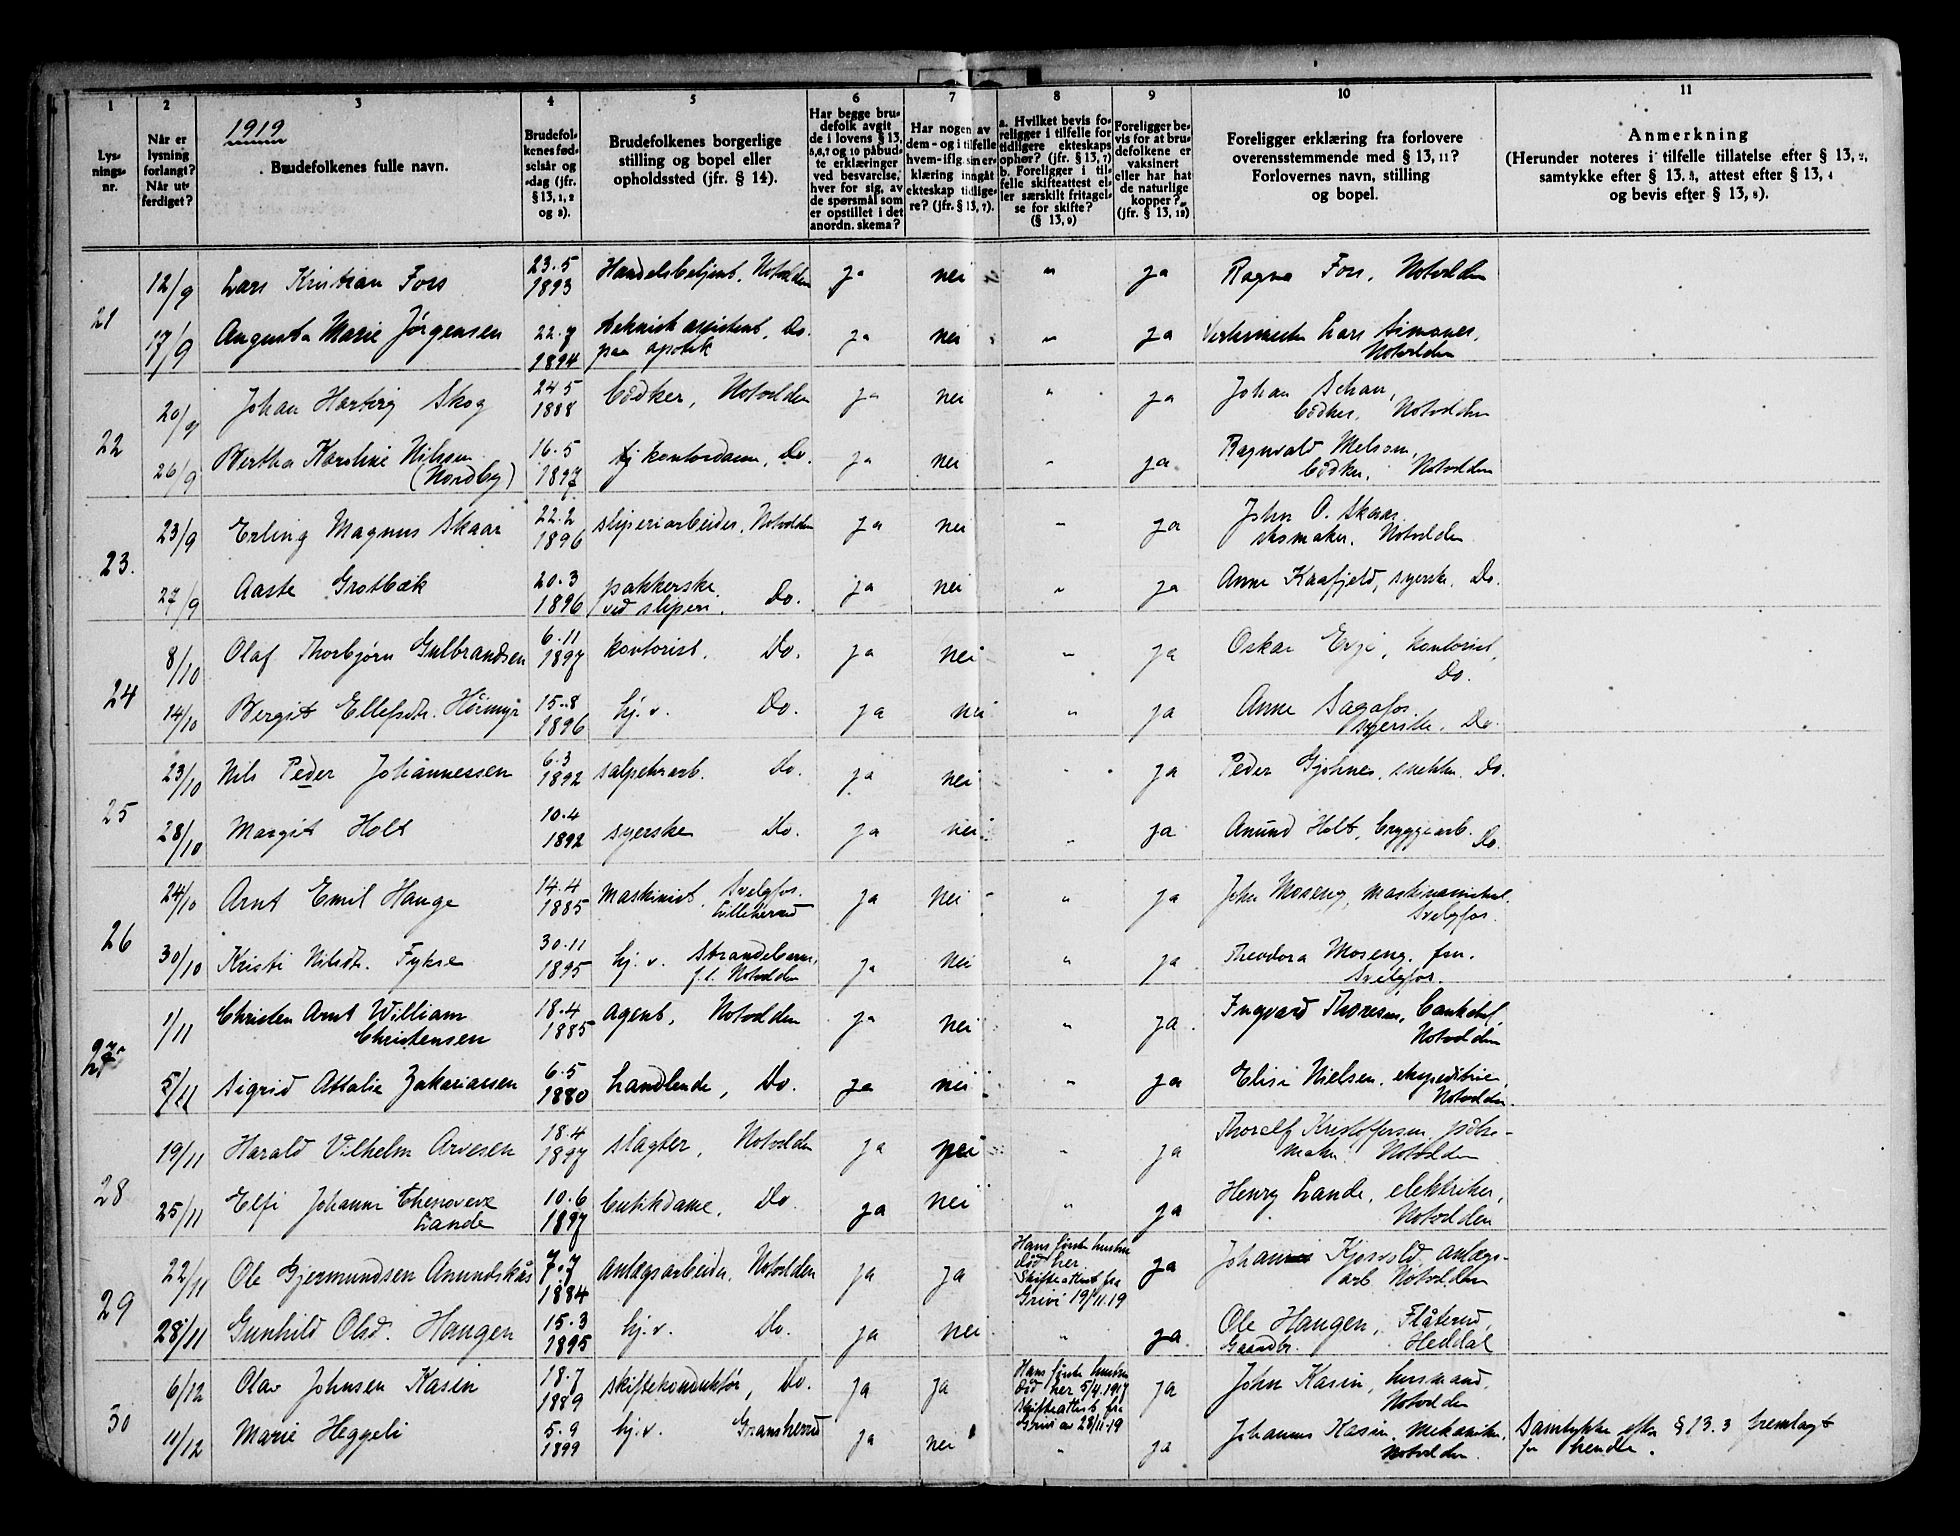 1 2 3 4 5 6 7 8 9 10 11
Lys-
nings-
nr.
Når er
lysning
forlangt?
Når ut-
ferdiget?
1919
Brudefolkenes fulle navn.
Brudefol-
kenes fød-
selsår og
-dag (jfr.
§ 13, 1, 2
og 3).
Brudefolkenes borgerlige
stilling og bopel eller
opholdssted (jfr. § 14).
Har begge bru-
defolk avgit
de i lovens § 13,
5, 6, 7 og 10 påbud-
te erklæringer
ved besvarelse,
hver for sig, av
de spørsmål som
er opstillet i det
anordn. skema?
Har nogen av
dem - og i tilfelle
hvem - iflg. sin er-
klæring inngåt
ekteskap tidlige-
re? (jfr. § 13, 7).
a. Hvilket bevis fo-
religger i tilfelle for
tidligere ekteskaps
ophør? (jfr. § 13, 7)
b. Foreligger i til-
felle skifteattest el-
ler særskilt fritagel-
se for skifte?
(§ 13, 9)
Foreligger be-
vis for at bru-
defolkene er
vaksinert
eller har hat
de naturlige
kopper?
(jfr. § 13, 12)
Foreligger erklæring fra forlovere
overensstemmende med § 13, 11?
Forlovernes navn, stilling
og bopel.
Anmerkning
(Herunder noteres i tilfelle tillatelse efter § 13, 2,
samtykke efter § 13, 3, attest efter § 13, 4
og bevis efter § 13, 8).
21
12/9 Lars Kristian Foss 23.5 1893 Handelsbetjent, Notodden ja nei " ja Ragna Foss, Notodden
17/9 Augusta Marie Jørgensen 22.7 1894 teknisk assistent, Do.
paa apotek ja nei " ja Lars Simones,
Notodden
22
20/9 Johan Hartvig Skog 24.5 1888 bødker, Notodden ja nei " ja Johan
bødker, Notodden
26/9 Bertha Karoline Nilssen
(Nordby) 16.5 1897 kontordame, Do. ja nei " ja Ragnvald Melsom,
bødker, Notodden
23.
23/9 Erling Magnus Skaar 22.2 1896 sliperiarbeider, Notodden ja nei " ja John O. Skaar
skomaker. Notodden
27/9 Aaste Grotbæk 20.3 1896 pakkerske
ved sliperi. Do. ja nei " ja Anne Kaafjeld, syerske. Do.
24
8/10 Olaf Thorbjørn Gulbrandsen 6.11 1897 kontorist. Do. ja nei " ja Oskar Evje, kontorist,
Do.
14/10 Bergit Ellefsdtr. Høimyr 15.8 1896 hj.v. Do. ja nei " ja Anne Sagafos
syerske. Do.
25
23/10 Nils Peder Johannessen 6.3 1892 salpeterarb. Do. ja nei " ja Peder Gjøhnes, snekker. Do.
28/10 Margit Holt 10.4 1892 syerske Do. ja nei " ja Anund Holt, bryggearb. Do.
26
24/10 Arnt Emil Hauge 14.4 1885 maskinist. Svelgfos.
Lilleherad ja nei " ja John Moseng, maskinassistent.
Svelgfos.
30/10 Kristi Nilsdtr. Fykse 30.11 1895 hj.v. Strandebarm,
f.t. Notodden ja nei " ja Theodora Moseng. fru.
Svelgfos.
27
1/11 Christen Arnt William
Christensen 18.4 1885 agent, Notodden ja nei " ja. Ingvard Thoresen,
Notodden
5/11 Sigrid Attalie Zakariassen 6.5 1880 handlende, Do. ja nei " ja Elise Nielsen. ekspeditrice,
Notodden.
28
19/11 Harald Vilhelm Arvesen 18.4 1897 slagter, Notodden ja nei " ja Thorolf Kristoffersen pølse-
maker. Notodden
25/11 Elfi Johanne
Lande 10.6 1897 butikdame, Do. ja nei " ja Henry Lande, elektriker,
Notodden
29
22/11 Ole Gjermundsen Anundskås 7.7 1884 Anlægsarbeider, Notodden ja ja Hans første hustru
død her
Skifteattest fra
Grivi 19/11.19 ja Johannes Kjosvold, anlægs-
arb. Notodden
28/11 Gunhild Olsd. Haugen 15.3 1895 hj.v. Do. ja nei " ja. Ole Haugen, Flåterud,
Gaardbr. Heddal
30
6/12 Olav Johnsen Kasin 18.7 1889 skiftekonduktør, Do. ja ja Hans første hustru
død her 5/4.1917
Skifteattest fra
Grivi av 28/11-19 ja John Kasin, husmand,
Notodden
11/12 Marie Heggeli 5.9 1899 hj.v. Gransherred ja nei " ja Johannes Kasin, Mekaniker,
Notodden. Samtykke efter § 13.3 fremlagt
for hende.